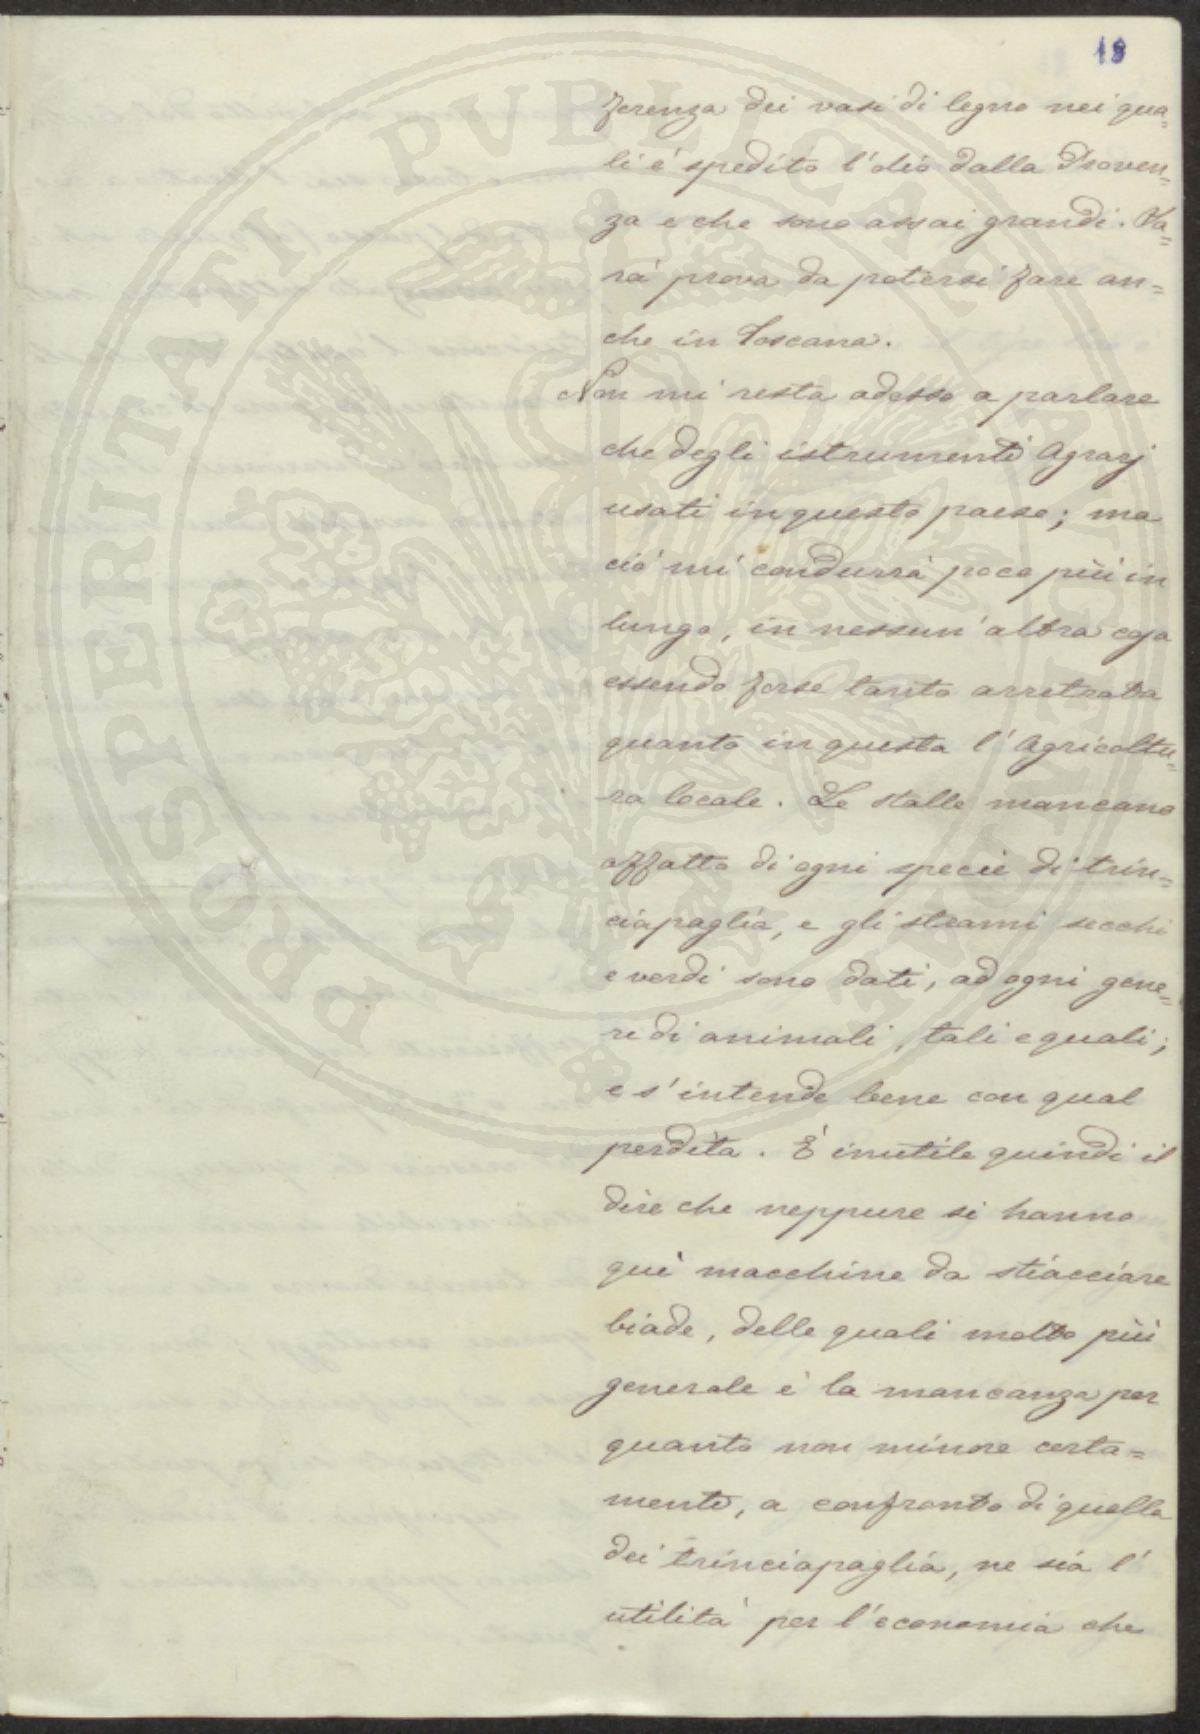 19
ferenza dei vasi di legno nei qua=
li é spedito l'olio dalla Proven=
za e che sono assai grandi. Sa=
rá prova da potersi fare an=
che in Toscana.
Non mi resta adesso a parlare
che degli istrumenti Agrarj
usati in questo paese; ma
ció mi condurrá poco piú in
lungo, in nessun'altra cosa
essendo forse tanto arretrata
quanto in questa l'Agricoltu=
ra locale. Le stalle mancano
affatto di ogni specie di trin=
ciapaglia, e gli strami secchi
e verdi sono dati, ad ogni gene=
re di animali, tali e quali;
e s'intende bene con qual
perdita. É inutile quindi il
dire che neppure si hanno
quì macchine da stiacciare
biade, delle quali molto più
generale é la mancanza per
quanto non minore certa=
mente, a confronto di quella
dei trinciapaglia, ne sia l'
utilitá per l'economia che
PROSPERITATI PVBLICAE